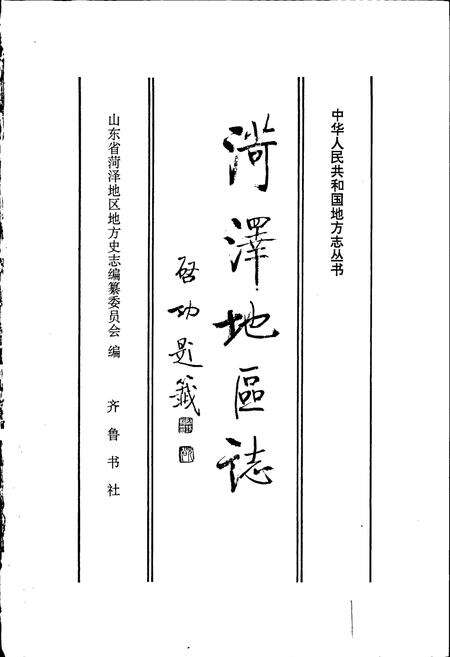 中华人民共和国地方志丛书
菏澤地區誌
启功题籤
山东省菏泽地区地方史志编纂委员会 编 齐鲁书社